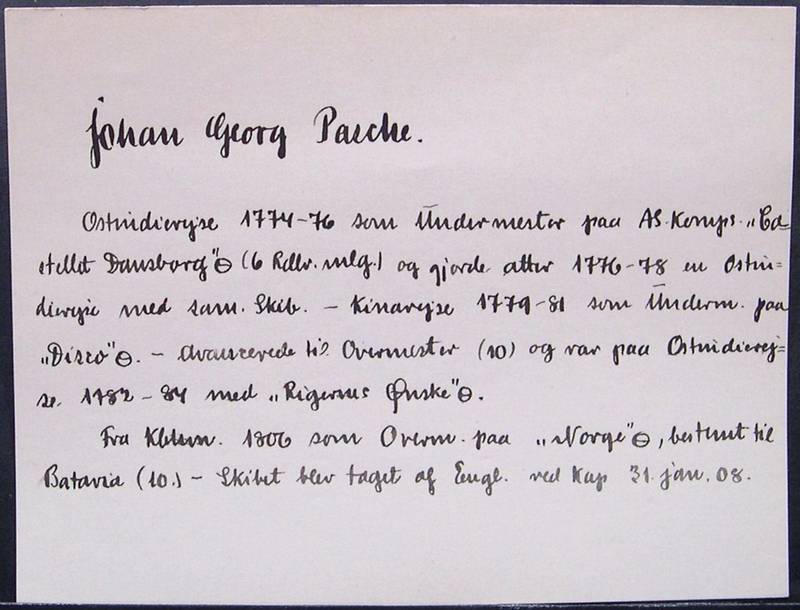 Johan Georg Pasche.
Ostindierejse 1774-76 som Undermester paa AS. Komps. „Ca-
stellet Dansborg"⊖ (6 Rdlr. mlg.) og gjorde atter 1776-78 en Ostin=
dierejse med sam. Skib. - Kinarejse 1779-81 som Underm. paa
„Disco"⊖. - Avancerede til Overmester (10) og var paa Ostindierej=
se 1782-84 med „Rigernes Ønske"⊖.
Fra Kbhvn. 1806 som Overm. paa „Norge"⊖, bestemt til
Batavia (10.) - Skibet blev taget af Engl. ved Kap 31. jan. 08.